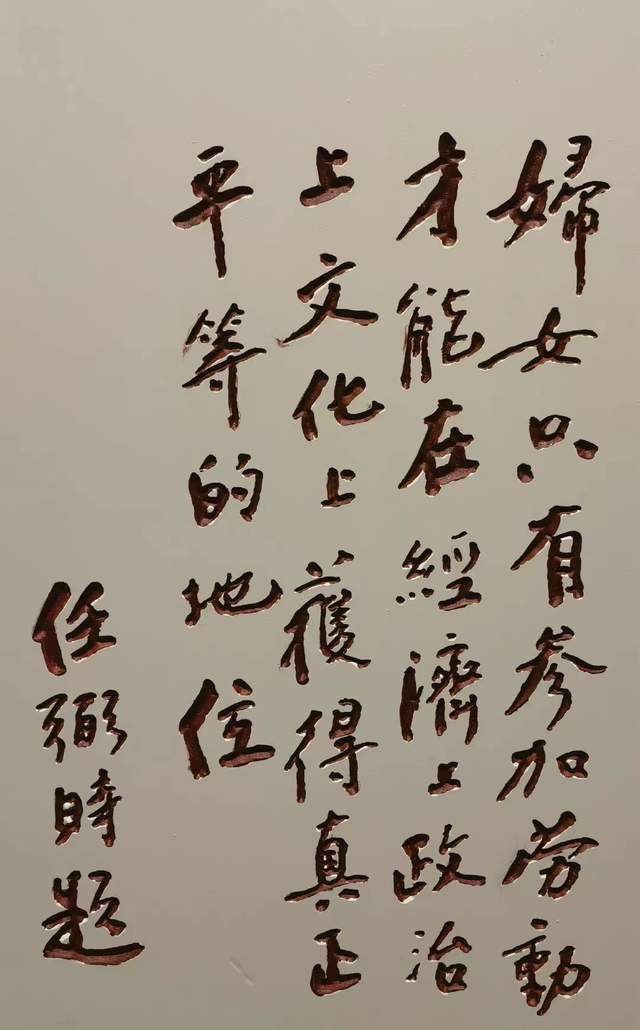 婦女只有参加劳動
才能在經濟上政治
上文化上獲得真正
平等的地位
任弼時題